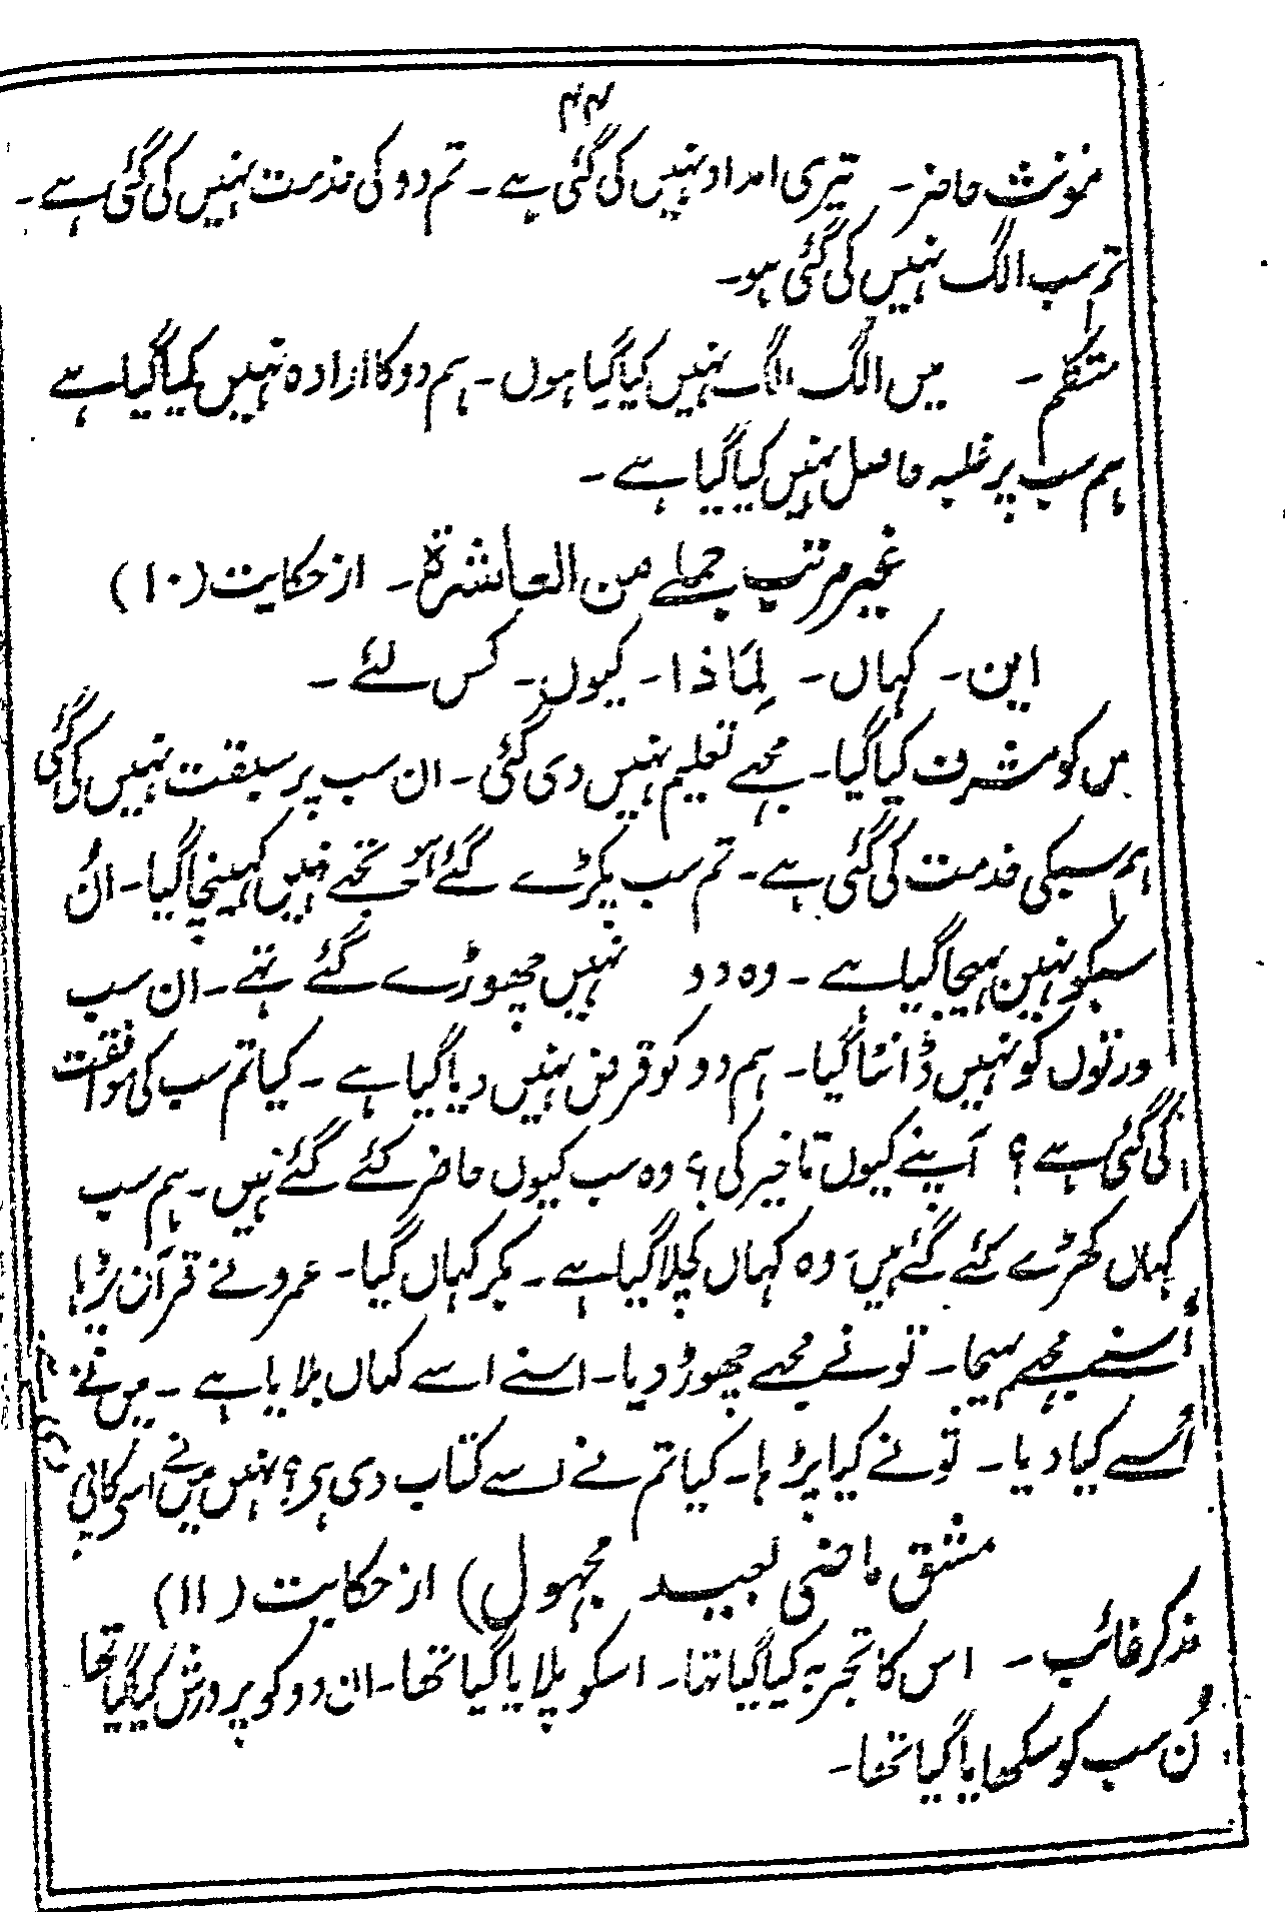 ۴۴
مونث حاضر۔ تیری امداد نہیں کی گئی ہے۔ تم دو کی خدمت نہیں کی گئی ہے۔
تم سب الگ نہیں کی گئی ہو۔
متکلم۔ میں الگ الگ نہیں کیا گیا ہوں۔ ہم دو کا ارادہ نہیں کیا گیا ہے
ہم سب پر غلبہ حاصل نہیں کیا گیا ہے۔
غیر مرتب جملے من العاشرۃ۔ از حکایت (۱۰)
این۔ کہاں۔ لِمَاذا۔ کیوں۔ کس لئے۔
کو مشرف کیا گیا۔ مجھے تعلیم نہیں دی گئی۔ ان سب پر سبقت نہیں کی گئی
سبکی خدمت کی گئی ہے۔ تم سب پکڑے گئے ہو تجھے نہیں کہینچا گیا۔ اُن
سبکو نہین بہیجا گیا ہے۔ وہ دو نہیں چھوڑے گئے تہے۔ ان سب
ورتوں کو نہیں ڈانٹا گیا۔ ہم دو کو قرض نہیں دیا گیا ہے۔ کیا تم سب کی موافقت
کی گئی ہے؟ آپنے کیوں تاخیر کی؟ وہ سب کیوں حاضر کئے گئے ہیں۔ ہم سب
کہاں کھڑے کئے گئے ہیں۔ وہ کہاں کچلا گیا ہے۔ بکر کہاں گیا۔ عمرو نے قرآن پڑہا
اُسنے مجھے بہیجا۔ تو نے مجھے چھوڑ دیا۔ اسنے اسے کہاں بلایا ہے۔ میں نے
اُسے کیا دیا۔ تو نے کیا پڑہا۔ کیا تم نے اسے کتاب دی ہی؟ نہیں میں نے اسی کاپی
مشق ماضی بعید مجہول) از حکایت (۱۱)
مذکر غائب۔ اس کا تجربہ کیا گیا تہا۔ اسکو پلایا گیا تھا۔ ان دو کو پرورش کیا گیا تھا
اُن سب کو سکھایا گیا تھا۔